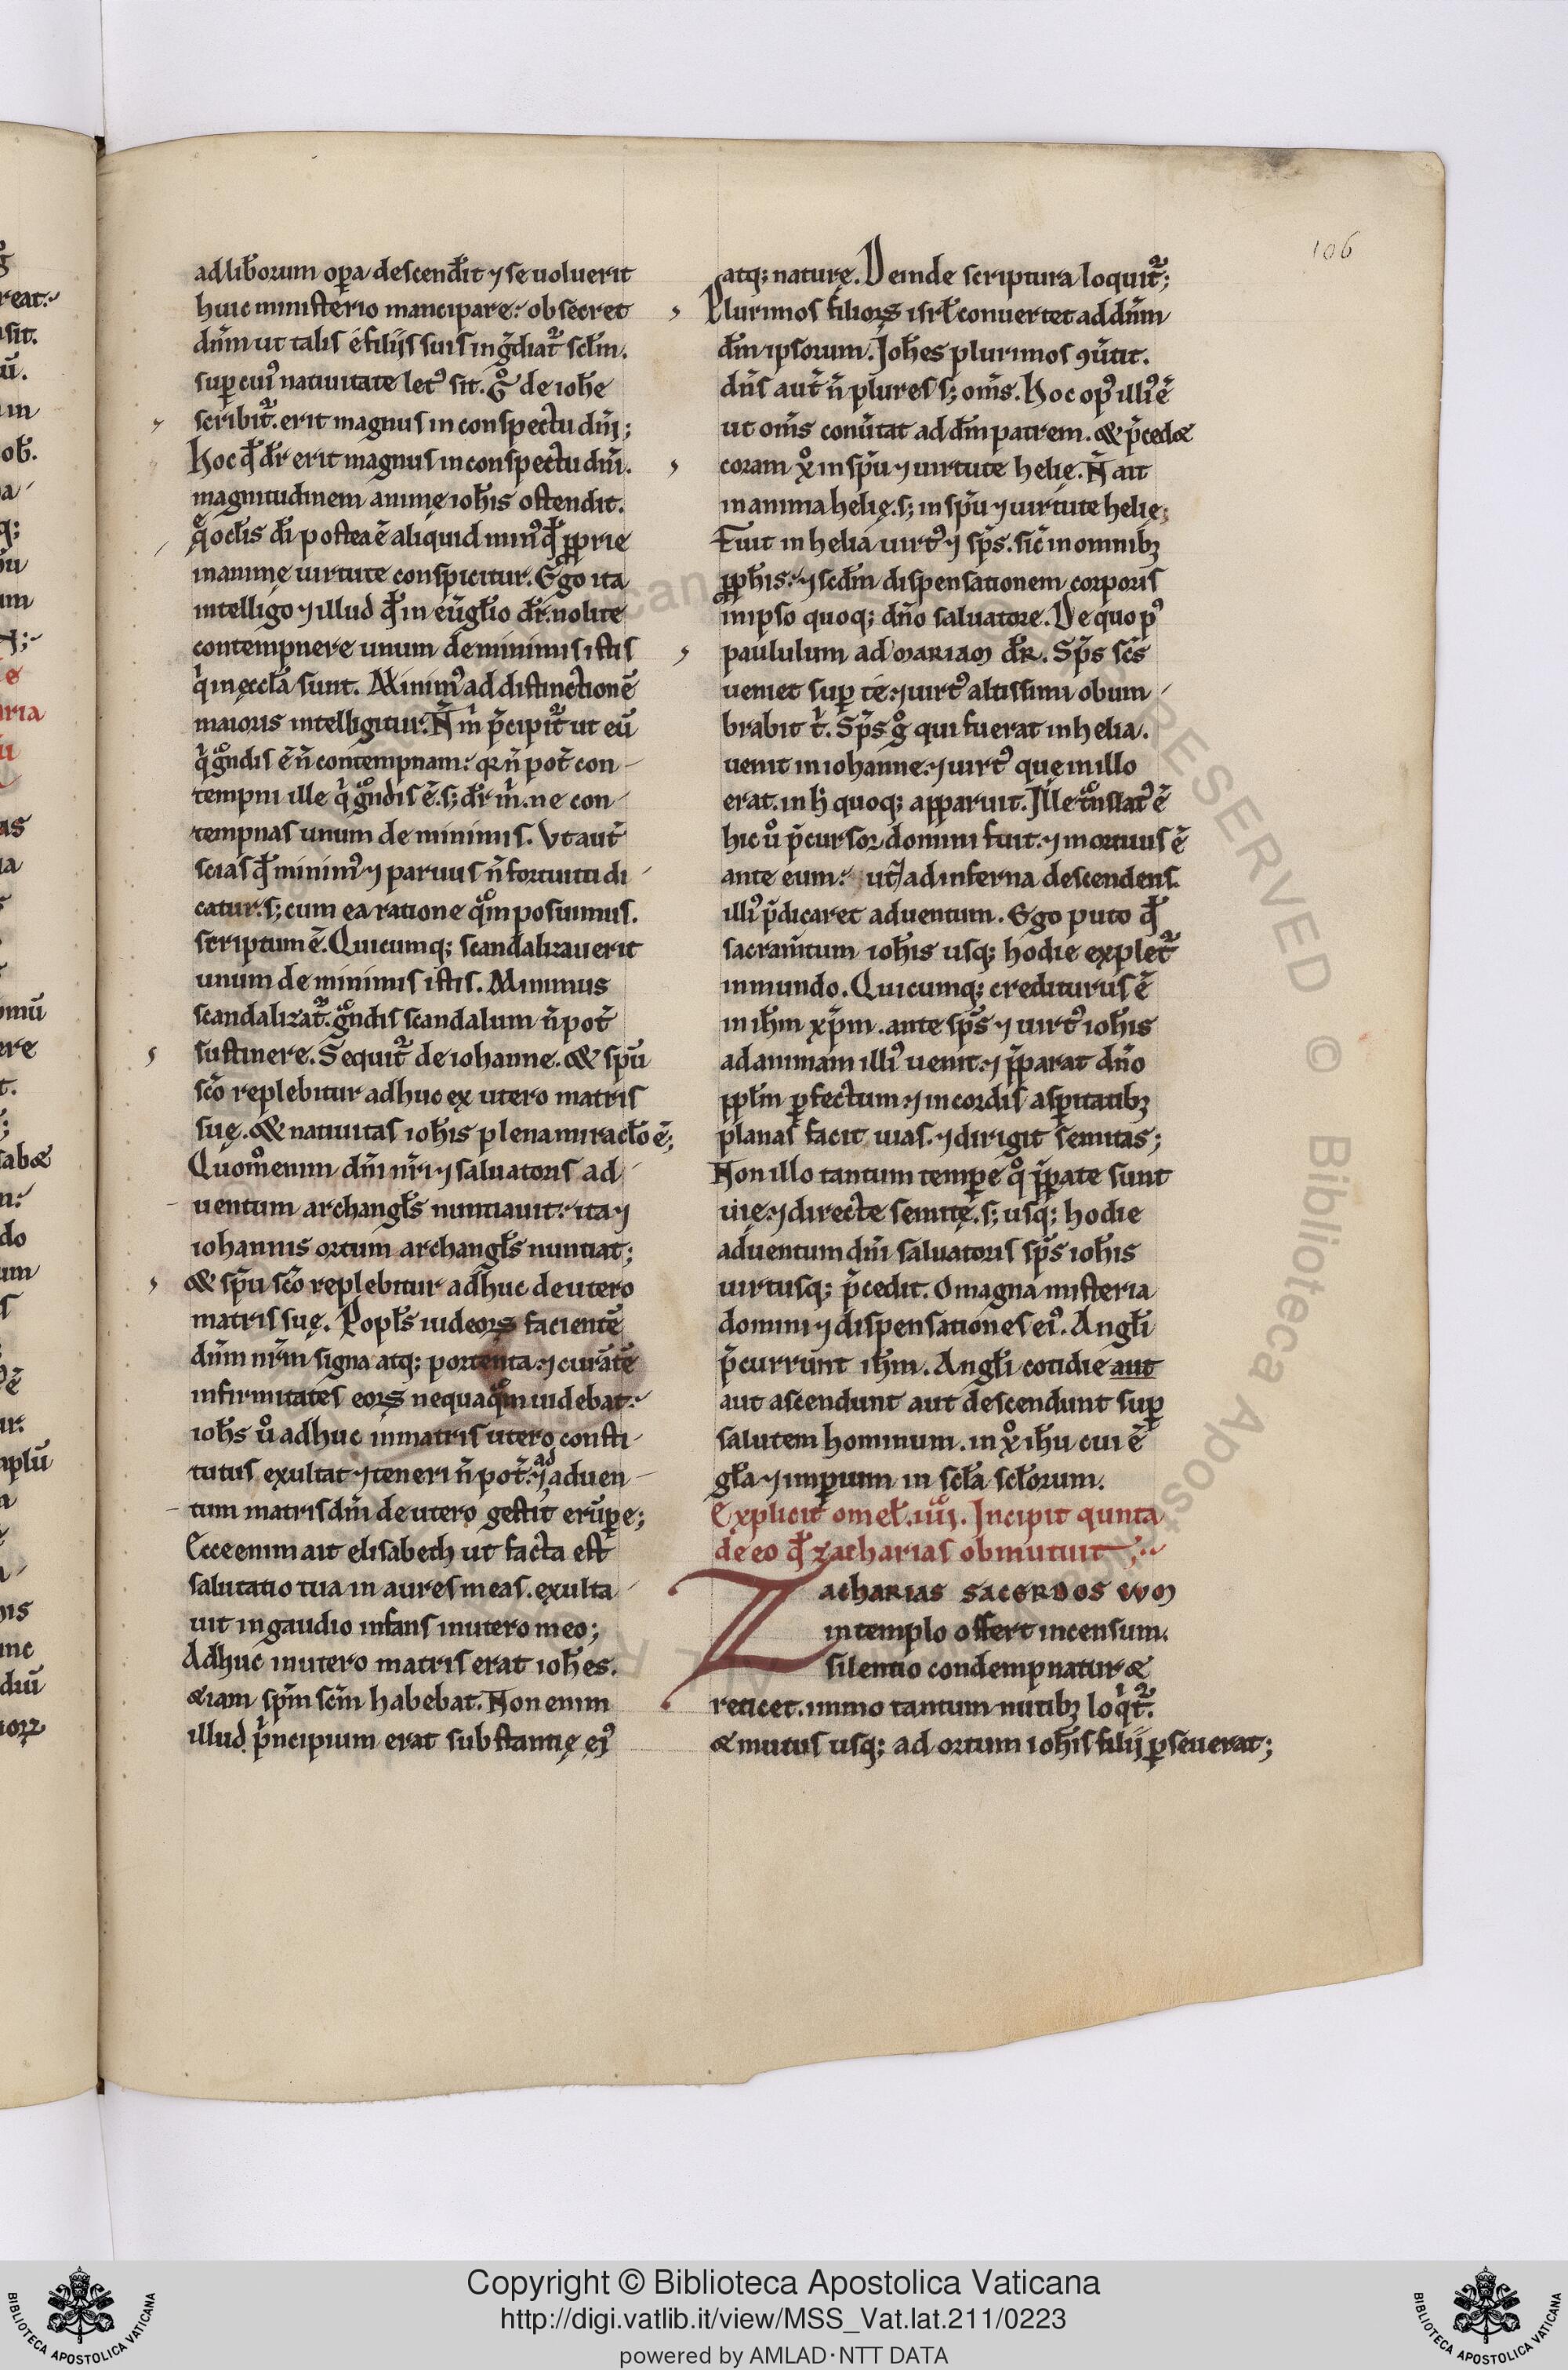 106
ad lib̄orum oꝑa descendit ⁊ se uoluerit
huic ministerio mancipare. obsecret
dn̄m ut talis é filijs suis ingr̄diat᷑ scl̄m.
suꝑ cuiꝰ natiuitate letꝰ sit. Gͦ de ioh̄e
scribit᷑. erit magnus in conspectu dn̄i;
Hoc qđ dr̄ erit magnus in conspectu dn̄i.
magnitudinem animę ioh̄is ostendit.
q̊ ocl̄is dī postea ē aliquid minꝰ qđ ꝓprie
in animę uirtute conspicitur. Ego ita
intelligo ⁊ illud qđ in eūgl̄io dr̄. nolite
contempnere unum de minimis istis
qͥ in ęccl̄a sunt. Minimꝰ ad distinctionē
maioris intelligitur. N̄ m̍ p̄cipit᷑ ut eū
qͥ gͣndis ē n̄ contempnam. qꝛ n̄ pot̄ con-
tempni ille qͥ gͣndis ē. s; dr̄ m̍. ne con-
tempnas unum de minimis. Vt aut̄
scias qđ minimꝰ ⁊ paruus n̄ fortuitu di-
catur. s; cum ea ratione qͣm posuimus.
scriptum ē. Quicumq; scandalizauerit
unum de minimis istis. Minimus
scandalizat᷑. gͣndis scandalum n̄ pot̄
sustinere. Sequit᷑ de iohanne. & spū
sc̄o replebitur adhuc ex utero matris
suę. & natiuitas ioh̄is plena miracl̄o ē;
Quomͦ enim dn̄i nr̄i ⁊ saluatoris ad-
uentum archangl̄s nuntiauit. ita ⁊
iohannis ortum archangl̄s nuntiat;
& spū sc̄o replebitur adhuc de utero
matris suę. Popl̄s iudeoꝝ facientē
dn̄m nr̄m signa atq; portenta. ⁊ curātē
infirmitates eoꝝ nequaqͣm uidebat.
ioh̄s ůͦ adhuc in matris utero consti-
tutus exultat ⁊ teneri n̄ pot̄. ⁊ ad aduen-
tum matris dn̄i de utero gestit erūꝑe;
Ecce enim ait elisabeth ut facta est
salutatio tua in aures meas. exulta-
uit in gaudio infans in utero meo;
Adhuc in utero matris erat ioh̄es.
& iam spm̄ scm̄ habebat. Non enim
illud p̍ncipium erat substantię eiꝰ
atq; naturę. Deinde scriptura loquit᷑;
Plurimos filioꝝ isrl̄ conuertet ad dn̄m
dm̄ ipsorum. Joh̄es plurimos ꝯūtit.
dn̄s aut̄ n̄ plures s; om̄s. Hoc opꝰ illiꝰ ē
ut om̄s conūtat ad dm̄ patrem. & p̄cedæ
coram xͦ in spū ⁊ uirtute helię. N̄ ait
in anima helię. s; in spū ⁊ uirtute helię;
Fuit in helia uirtꝰ ⁊ sps̄. sic̄ in omnibꝫ
ꝓph̄is. ⁊ scdm̄ dispensationem corporis
in ipso quoq; dn̄o saluatore. De quo pꝰ
paululum ad MARIAM dr̄. Sps̄ sc̄s
ueniet suꝑ te. ⁊ uirtꝰ altissimi obum-
brabit t̍. Sps̄ gͦ qui fuerat in helia.
uenit in iohanne. ⁊ uirtꝰ quę in illo
erat. in h̍ quoq; apparuit. Ille tͣnslatꝰ ē
hic ůͦ p̄cursor domini fuit. ⁊ mortuus ē
ante eum. ut ad inferna descendens.
illiꝰ p̄dicaret aduentum. Ego puto qđ
sacram̄tum ioh̄is usq; hodie explet᷑
in mundo. Quicumq; crediturus ē
in ih̄m xp̄m. ante sps̄ ⁊ uirtꝰ ioh̄is
ad animam illiꝰ uenit. ⁊ p̄parat dn̄o
ppl̄m ꝑfectum. ⁊ in cordis asꝑitatibꝫ
planas facit uias. ⁊ dirigit semitas;
Non illo tantum temꝑe qͦ p̄parate sunt
uię. ⁊ directe semitę. s; usq; hodie
aduentum dn̄i saluatoris sps̄ ioh̄is
uirtusq; p̄cedit. O magna misteria
domini ⁊ dispensationes eiꝰ. Angl̄i
p̄currunt ih̄m. Angl̄i cotidie aut
aut ascendunt aut descendunt suꝑ
salutem hominum. in xͦ ih̄u cui ē
gl̄a ⁊ imperium in scl̄a scl̄orum.
Explicit omel̄. iiij. Incipit quinta
de eo qđ zacharias obmutuit;
ZACHARIAS SACERDOS DUM
in templo offert incensum.
silentio condempnatur &
reticet. immo tantum nutibꝫ loqͥt᷑.
& mutus usq; ad ortum ioh̄is filij ꝑseuerat;
Copyright © Biblioteca Apostolica Vaticana
http://digi.vatlib.it/view/MSS_Vat.lat.211/0223
powered by AMLAD·NTT DATA
BIBLIOTECA APOSTOLICA VATICANA
BIBLIOTECA APOSTOLICA VATICANA